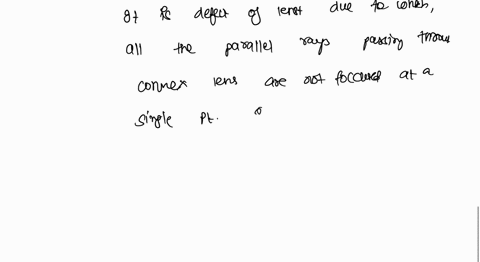 It is defect of lens due to which,
all the parallel rays passing throu
convex lens are not focused at a
single pt.